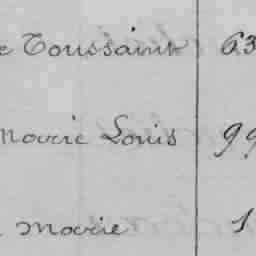 e Toussaint 63
Marie Louis 99
Marie 1